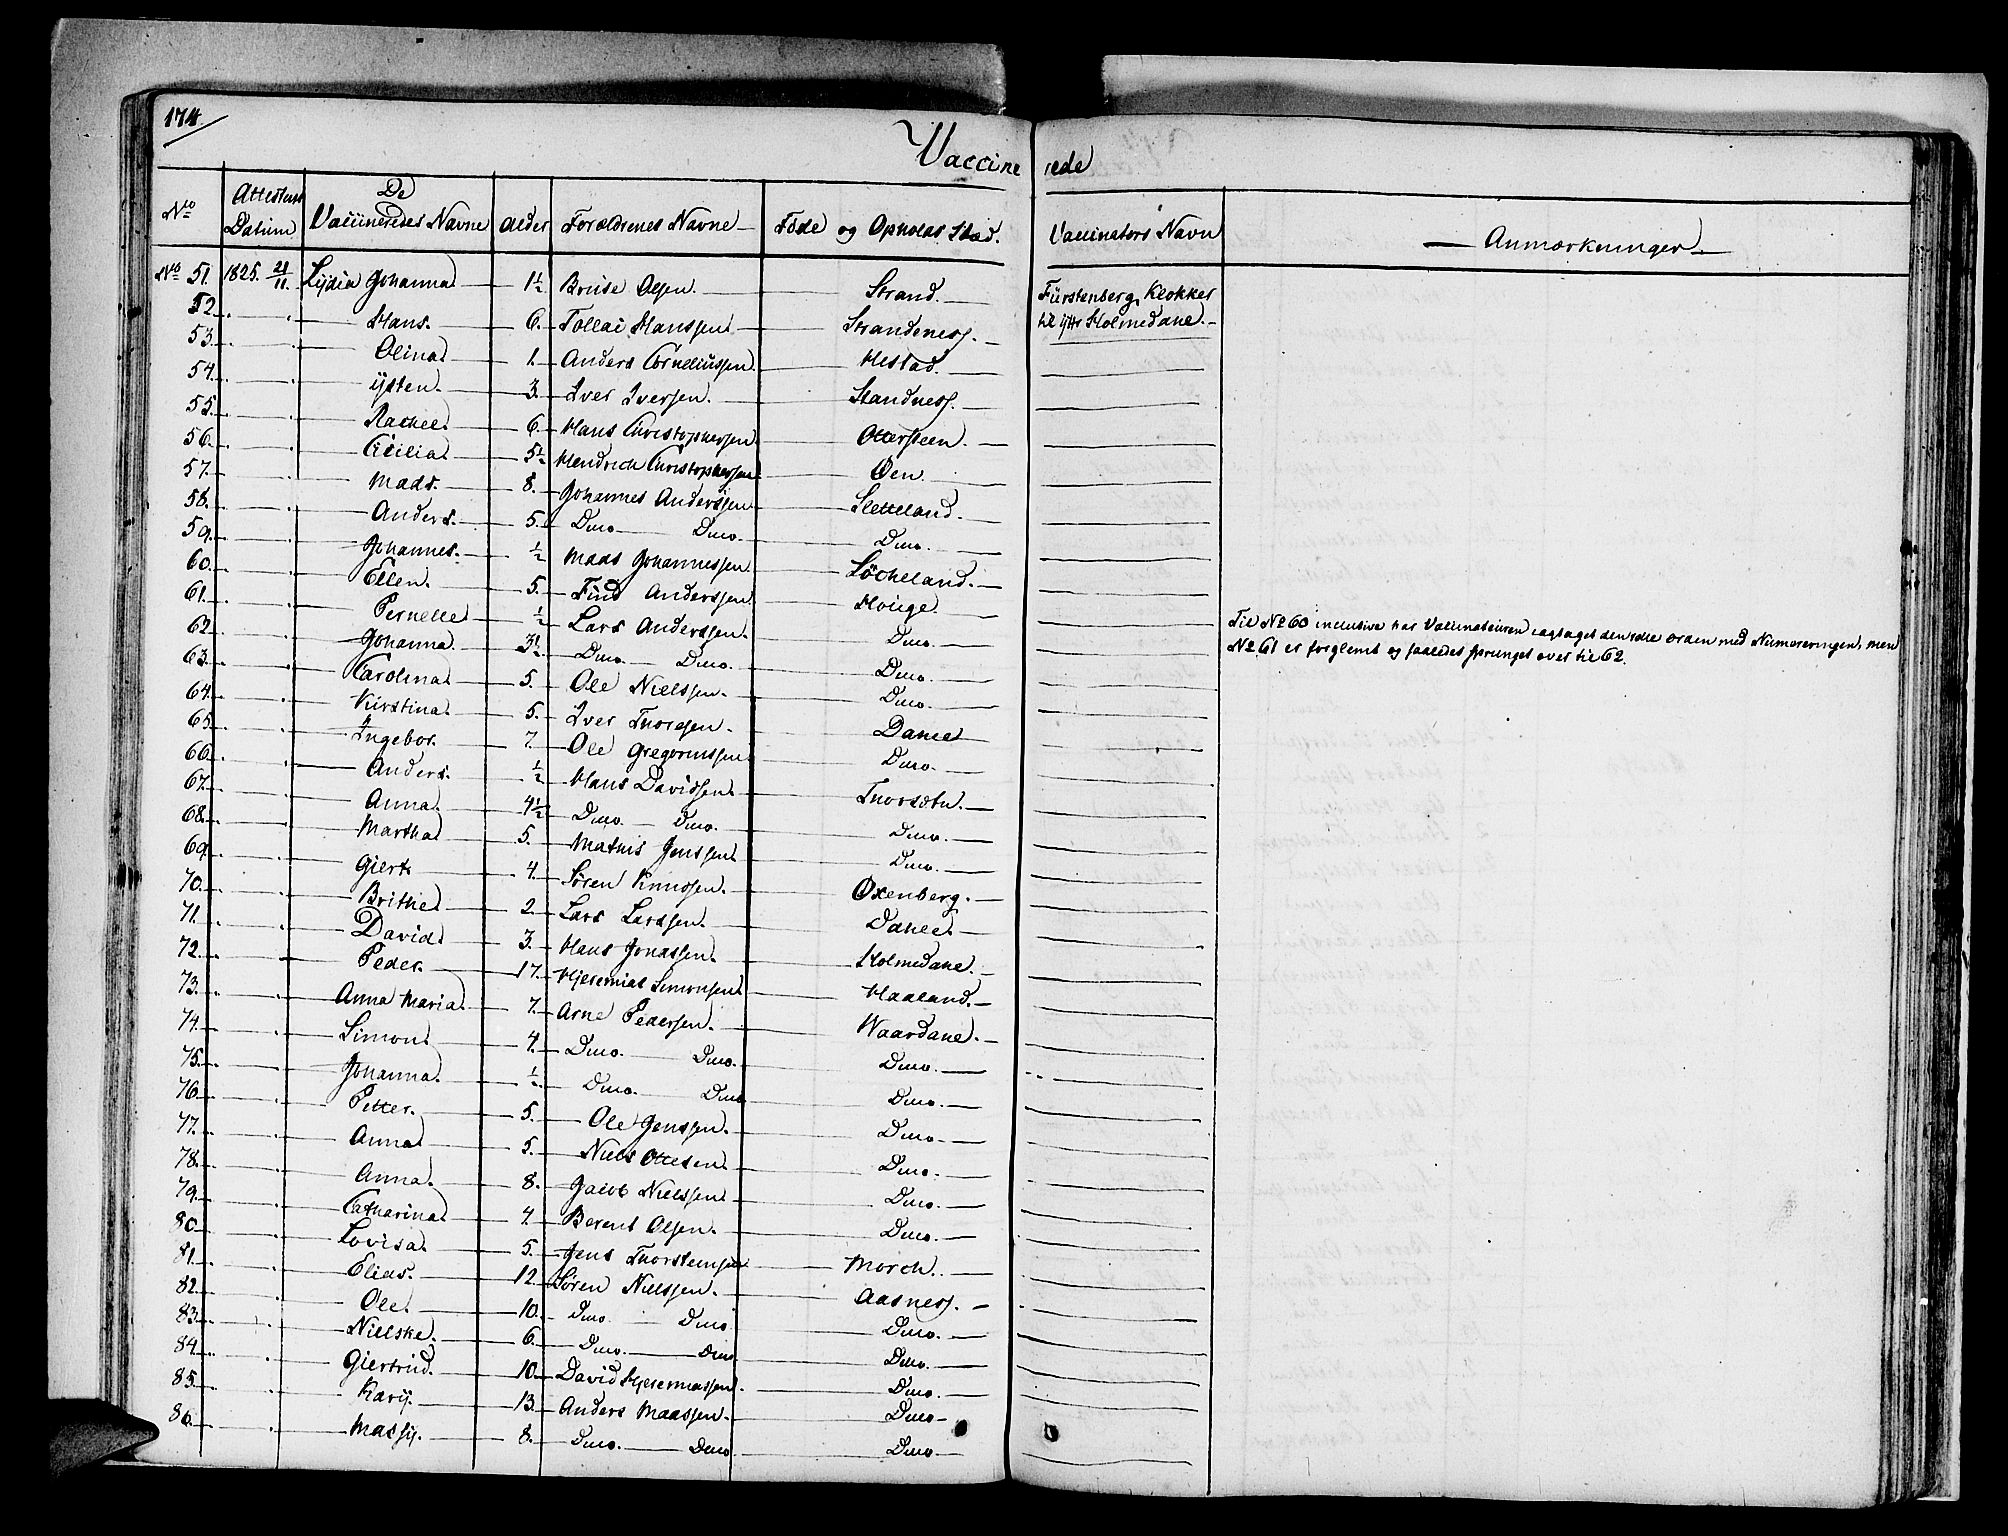 174.
Vaccinerede
No Attestens Datum De Vaccineredes Navne Alder Forældrenes Navne Føde og Opholds Stæd. Vaccinators Navn Anmærkninger
No 51. 1825. 21/11. Lydia Johanna 1½ Bruse Olsen. Strand. Fürstenberg, Klokker
52. Hans. 6. Tollai Hanssen Strandenes. til ytr Holmedane.
53. Olina 1. Anders Corneliussen. Hestad.
54. ysten. 3. Iver Iversen. Standness.
55. Rachel 6. Hans Christophersen Ottersteen.
56. Cicilia 5½ Hendrich Christophersen Øen
57. Mads. 8. Johannes Anderssen Sletteland.
58. Anders. 5. Dito Dito. Dito.
59. Johannes. ½ Mads Johannessen Löcheland.
60. Ellen. 5. Find Anderssen Houge.
61. Pernelle ½ Lars Anderssen. Dito.
62. Johanna. 3½ Dito. Dito. Dito.
63. Carolina 5. Ole Nielssen. Dito.
64. Kirstina. 5. Iver Thoresen. Danel
65. Ingebor. 7. Ole Gregoriussen Dito.
66. Anders. ½ Hans Davidsen. Thorsetn.
67. Anna. 4½ Dito. Dito. Dito.
68. Martha 5. Mathis Jenssen Dito.
69. Giert 4. Søren Knudsen. Oxenberg.
70. Brithe 2. Lars Larssen. Danel.
71. David. 3. Hans Jonassen. Holmedane.
72. Peder. 17. Hjeremias Simonsen Haaland.
73. Anna Maria 7. Arne Pedersen. Waardane.
74. Simon 4. Dito. Dito. Dito.
75. Johanna. ½ Dito. Dito Dito.
76. Petter. 5. Ole Jenssen. Dito.
77. Anna 5. Niels Ottesen Dito.
78. Anna. 8. Jacob Nielssen Dito.
79. Catharina 4. Berent Olsen. Dito.
80. Lovisa. 5. Jens Thorstensen Morch.
81. Elias. 12. Søren Nielssen. Aasness.
82. Ole 10. Dito. Dito Dito.
83. Nielske. 6. Dito. Dito Dito.
84. Giertrud. 10. David Hjeremiassen. Dito.
85. Kary. 13. Anders Madssen. Dito
86. Massy. 8. Dito. Dito Dito
Til No 60 inclusive har Vaccinateuren iagtaget den rette orden med Numereringen, men
No 61 er forglemt og saaledes sprunget over til 62.